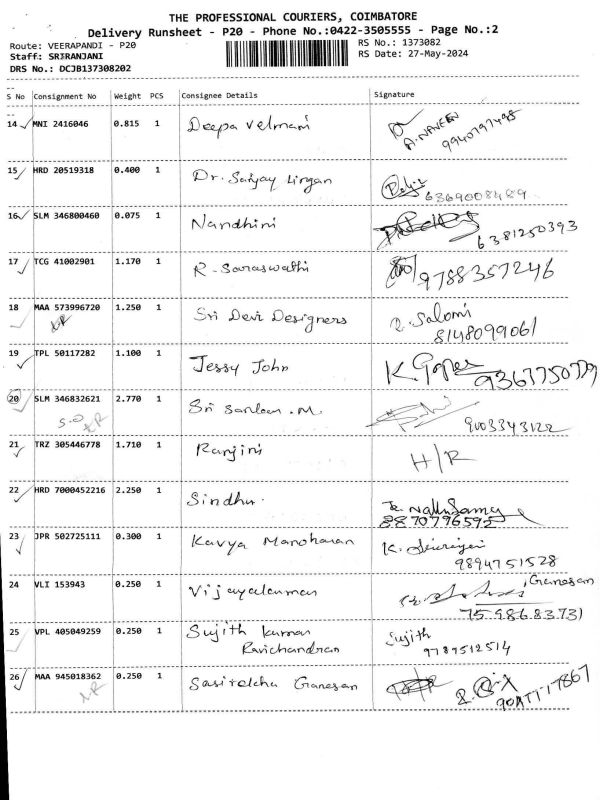 THE PROFESSIONAL COURIERS, COIMBATORE
Delivery Runsheet - P20 - Phone No.:0422-3505555 - Page No.:2
Route: VEERAPANDI - P20
RS No.: 1373082
Staff: SRIRANJANI
RS Date: 27-May-2024
DRS No.: DCJB137308202
S No Consignment No Weight PCS Consignee Details Signature
14 MNI 2416046 0.815 1 Deepa Velmani A. NAVEEN
9940797498
15 HRD 20519318 0.400 1 Dr. Sanjay Lingan
6369008489
16 SLM 346800460 0.075 1 Nandhini
6381250393
17 TCG 41002901 1.170 1 R. Saraswathi 9788357246
18 MAA 573996720 1.250 1 Sri Devi Designers R. Salomi
8148099061
19 TPL 50117282 1.100 1 Jessy John
20 SLM 346832621 2.770 1
9003343122
21 TRZ 305446778 1.710 1 Ranjini H/R
22 HRD 7000452216 2.250 1 Sindhu.
8870796592
23 JPR 502725111 0.300 1 Kavya Manoharan
9894751528
24 VLI 153943 0.250 1 Vijayakumar Ganesan
75 986 83731
25 VPL 405049259 0.250 1 Sujith Kumar Sujith
Ravichandran 9789512514
26 MAA 945018362 0.250 1 Sasirekha Ganesan